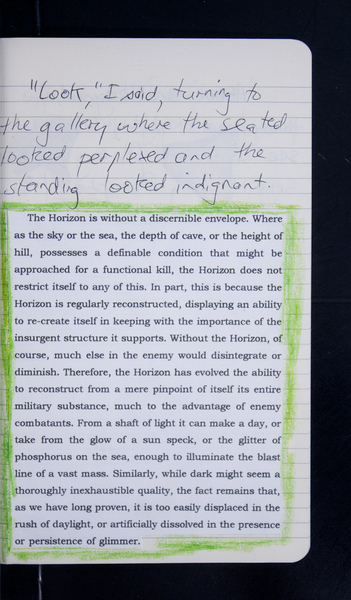 "Look," I said, turning to
the gallery where the seated
looked perplexed and the
standing looked indignant.
The Horizon is without a discernible envelope. Where
as the sky or the sea, the depth of cave, or the height of
hill, possesses a definable condition that might be
approached for a functional kill, the Horizon does not
restrict itself to any of this. In part, this is because the
Horizon is regularly reconstructed, displaying an ability
to re-create itself in keeping with the importance of the
insurgent structure it supports. Without the Horizon, of
course, much else in the enemy would disintegrate or
diminish. Therefore, the Horizon has evolved the ability
to reconstruct from a mere pinpoint of itself its entire
military substance, much to the advantage of enemy
combatants. From a shaft of light it can make a day, or
take from the glow of a sun speck, or the glitter of
phosphorus on the sea, enough to illuminate the blast
line of a vast mass. Similarly, while dark might seem a
thoroughly inexhaustible quality, the fact remains that,
as we have long proven, it is too easily displaced in the
rush of daylight, or artificially dissolved in the presence
or persistence of glimmer.